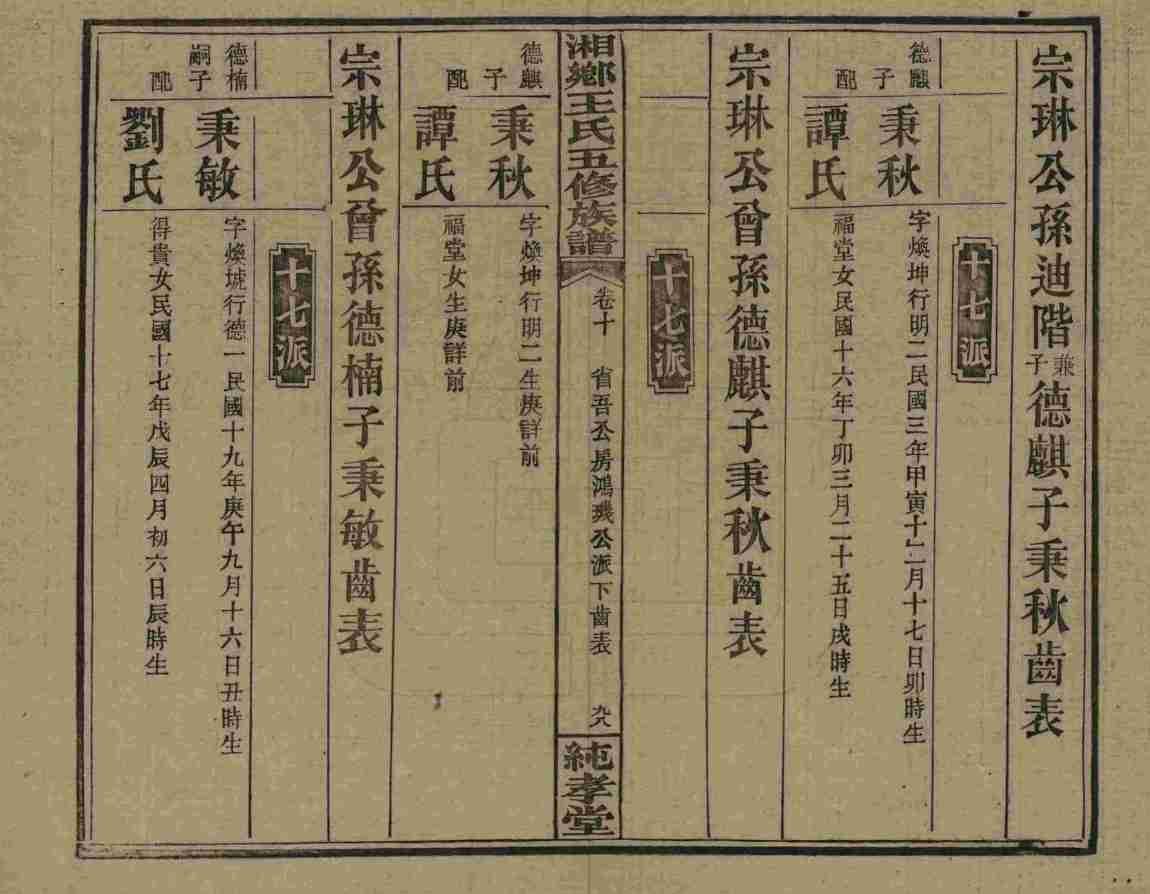 宗琳公孫迪階兼子德麒子秉秋齒表
十七派
德麒子
秉秋
字煥坤行明二民國三年甲寅十二月十七日卯時生
配
譚氏
福堂女民國十六年丁卯三月二十五日戌時生
宗琳公曾孫德麒子秉秋齒表
十七派
湘鄉王氏五修族譜
卷十
省吾公房鴻璣公派下齒表
九八
純孝堂
德麒子
秉秋
字煥坤行明二生庚詳前
配
譚氏
福堂女生庚詳前
宗琳公曾孫德楠子秉敏齒表
十七派
德楠嗣子
秉敏
字煥城行德一民國十九年庚午九月十六日丑時生
配
劉氏
得貴女民國十七年戊辰四月初六日辰時生